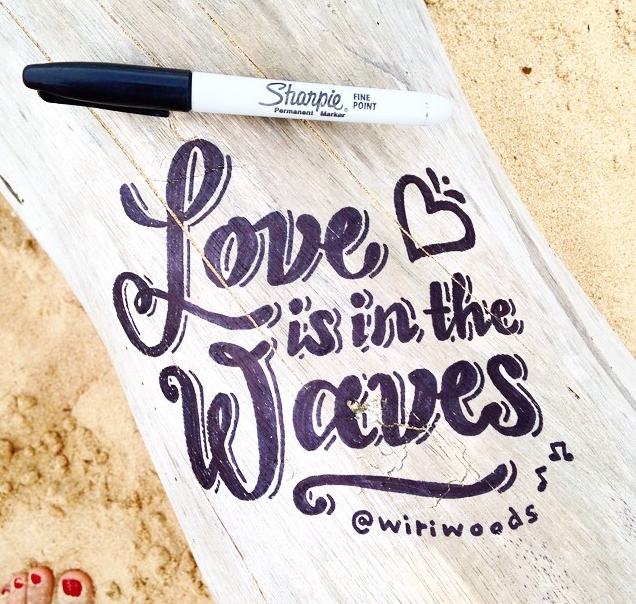 Sharpie® FINE
POINT
Permanent Marker
Love
is in the
Waves
@wiriwoods